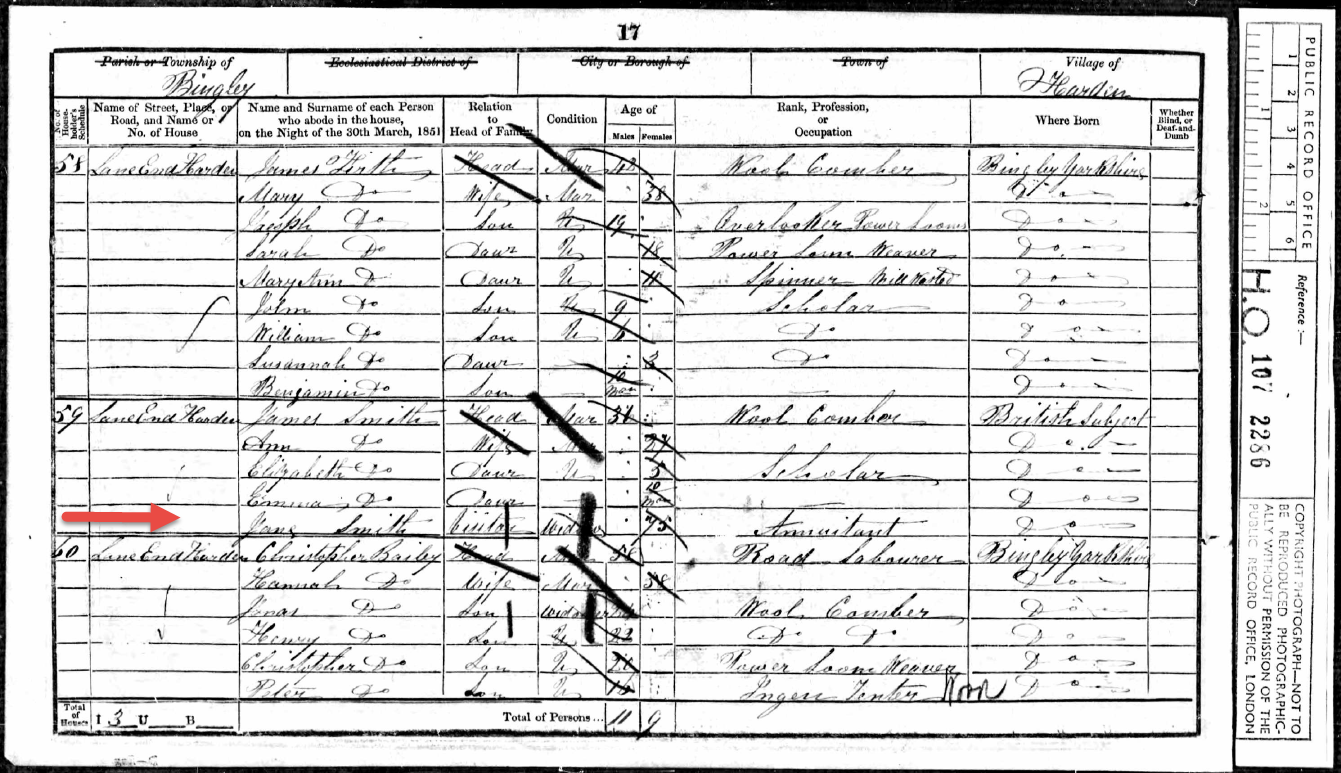 17
Parish or Township of Ecclesiastical District of City or Borough of Town of Village of
Bingley Harden
No. of House-holder's Schedule Name of Street, Place, or Road, and Name or No. of House Name and Surname of each Person who abode in the house, on the Night of the 30th March, 1851 Relation to Head of Family Condition Age of Males Females Rank, Profession, or Occupation Where Born Whether Blind, or Deaf-and-Dumb
58 Lane End Harden James Firth Head Mar Wool Comber Bingley Yorkshire
Mary Do Wife Mar 38 Do
Joseph Do Son U 19 Overlooker Power Looms Do
Sarah Do Daur U 18 Power Loom Weaver Do
Mary Ann D Daur U 11 Spinner Do
John Do Son U 9 Scholar Do
William Do Son U 6 Do Do
Susannah Do Daur 3 Do Do
Benjamin Do Son 10 Mon Do
59 Lane End Harden James Smith Head Mar Wool Comber British Subject
Ann Do Wife Mar 27 Do
Elizabeth Do Daur U 5 Scholar Do
Emma Do Daur 10 Mon Do
Jane Smith Widow 75 Annuitant Do
60 Lane End Harden Christopher Bailey Head Mar 58 Road Labourer Bingley Yorkshire
Hannah Do Wife Mar 58 Do
Jonas Do Son Widower Wool Comber Do
Henry Do Son U 22 Do Do Do
Christopher Do Son U Power Loom Weaver Do
Peter Do Son U Do
Total of Houses I 3 U B Total of Persons... 11 9
PUBLIC RECORD OFFICE
1 2 3 4 5 6
1 2
Reference :-
H.O. 107 2286
COPYRIGHT PHOTOGRAPH—NOT TO
BE REPRODUCED PHOTOGRAPHIC-
ALLY WITHOUT PERMISSION OF THE
PUBLIC RECORD OFFICE, LONDON